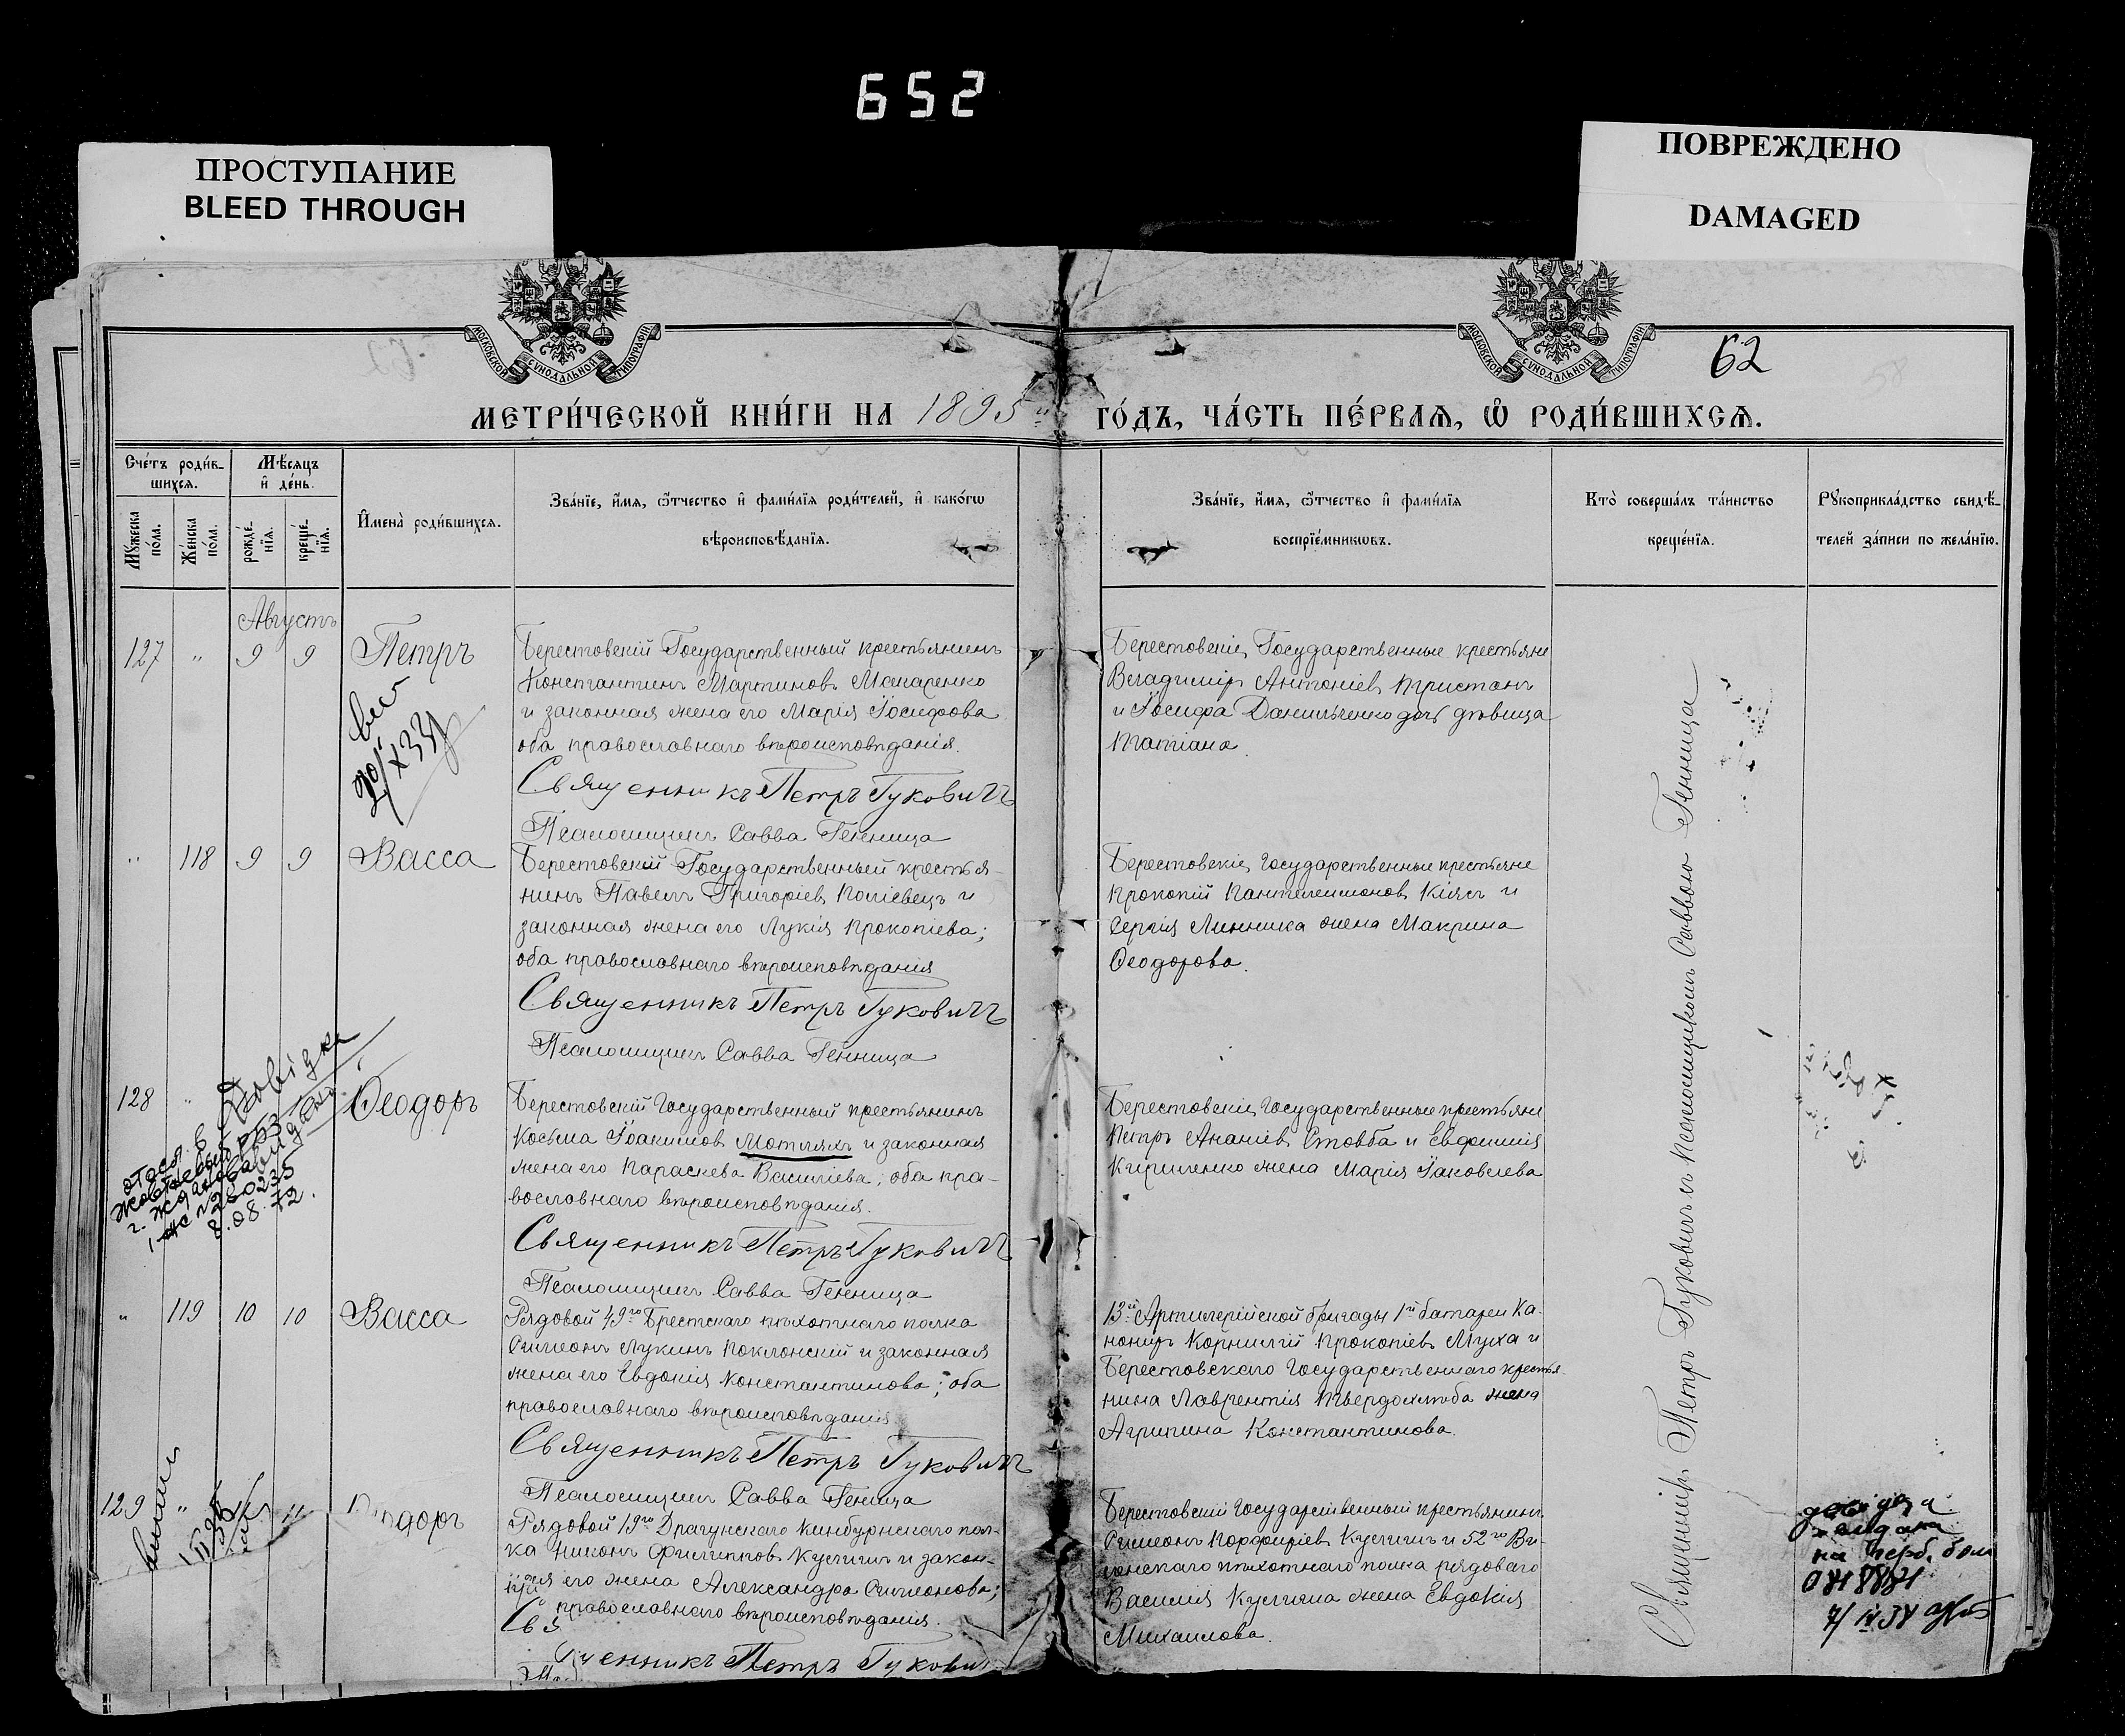 652
ПРОСТУПАНИЕ
BLEED THROUGH
ПОВРЕЖДЕНО
DAMAGED
МОСКОВСКОЙ СУНОДАЛЬНОЙ ТИПОГРАФІИ
МОСКОВСКОЙ СУНОДАЛЬНОЙ ТИПОГРАФІИ
62
МЕТРИ́ЧЕСКОЙ КНИ́ГИ НА 1895й ГО́ДЪ, ЧА́СТЬ ПЕ́РВАѦ, Ѡ҆ РОДИ́ВШИХСѦ.
Сче́тъ роди́в-
шихсѧ.
Мѣ́сѧцъ
и҆ де́нь.
Мꙋ́жеска
по́ла.
Же́нска
по́ла.
рожде́-
нїѧ.
креще́-
нїѧ.
И҆мена̀ роди́вшихсѧ.
Зва́нїе, и҆́мѧ, ѻ҆́тчество и҆ фами́лїѧ роди́телей, и҆ како́гѡ
вѣроисповѣ́данїѧ.
Зва́нїе, и҆́мѧ, ѻ҆́тчество и҆ фами́лїѧ
воспрїе́мникѡвъ.
Кто̀ соверша́лъ та́инство
креще́нїѧ.
Рꙋкоприкла́дство свидѣ́-
телей за́писи по жела́нїю.
Августъ
127 " 9 9 Петръ
Берестовскій Государственный крестьянинъ
Константинъ Мартиновъ Макаренко
и законная жена его Марія Іосифова
оба православнаго вѣроисповѣданія.
Священникъ Петръ Гуковичъ
Псаломщикъ Савва Генница
Берестовскіе Государственные крестьяне
Владиміръ Антоніев Тристанъ
и Іосифа Данильченко дочь дѣвица
Татіана
" 118 9 9 Васса
Берестовскій Государственный крестья-
нинъ Павелъ Григоріев Поліевецъ и
законная жена его Лукія Прокопіева;
оба православнаго вѣроисповѣданія
Священникъ Петръ Гуковичъ
Псаломщикъ Савва Генница
Берестовскіе Государственные крестьяне
Прокопій Пантелеимонов Кіяс и
Сергія Линника жена Макрина
Ѳеодорова.
128 " Ѳеодоръ
8.08.72.
Берестовскій Государственный крестьянинъ
Косьма Іоакимов Мотлях и законная
жена его Параскева Василіева; оба пра-
вославнаго вѣроисповѣданія.
Священникъ Петръ Гуковичъ
Псаломщикъ Савва Генница
Берестовскіе Государственные крестьяне
Петръ Ананіев Стовба и Евфимія
Кириченко жена Марія Іаковлева
" 119 10 10 Васса
Рядовой 49го Брестскаго пѣхотнаго полка
Симеонъ Лукинъ Поклонскій и законная
жена его Евдокія Константинова; оба
православнаго вѣроисповѣданія
Священникъ Петръ Гуковичъ
Псаломщикъ Савва Генница
13й Артилерійской бригады 1й батареи Ка-
нониръ Корнилій Прокопіев Муха и
Берестовскаго Государственнаго крестья-
нина Лаврентія Твердохлѣба жена
Агрипина Константинова.
129 " 11
Рядовой 19го Драгунскаго Кинбурнскаго пол-
ка Никонъ Филиппов Куличъ и закон-
его жена Александра Симеонова;
православнаго вѣроисповѣданія.
Петръ Гукович
Берестовскій Государственный крестьянинъ
Симеонъ Порфиріев Куличъ и 52го Ви-
ленскаго пѣхотнаго полка рядоваго
Василія Кулича жена Евдокія
Михаилова.
Священникъ Петръ Гуковичъ и Псаломщикомъ Саввою Генница